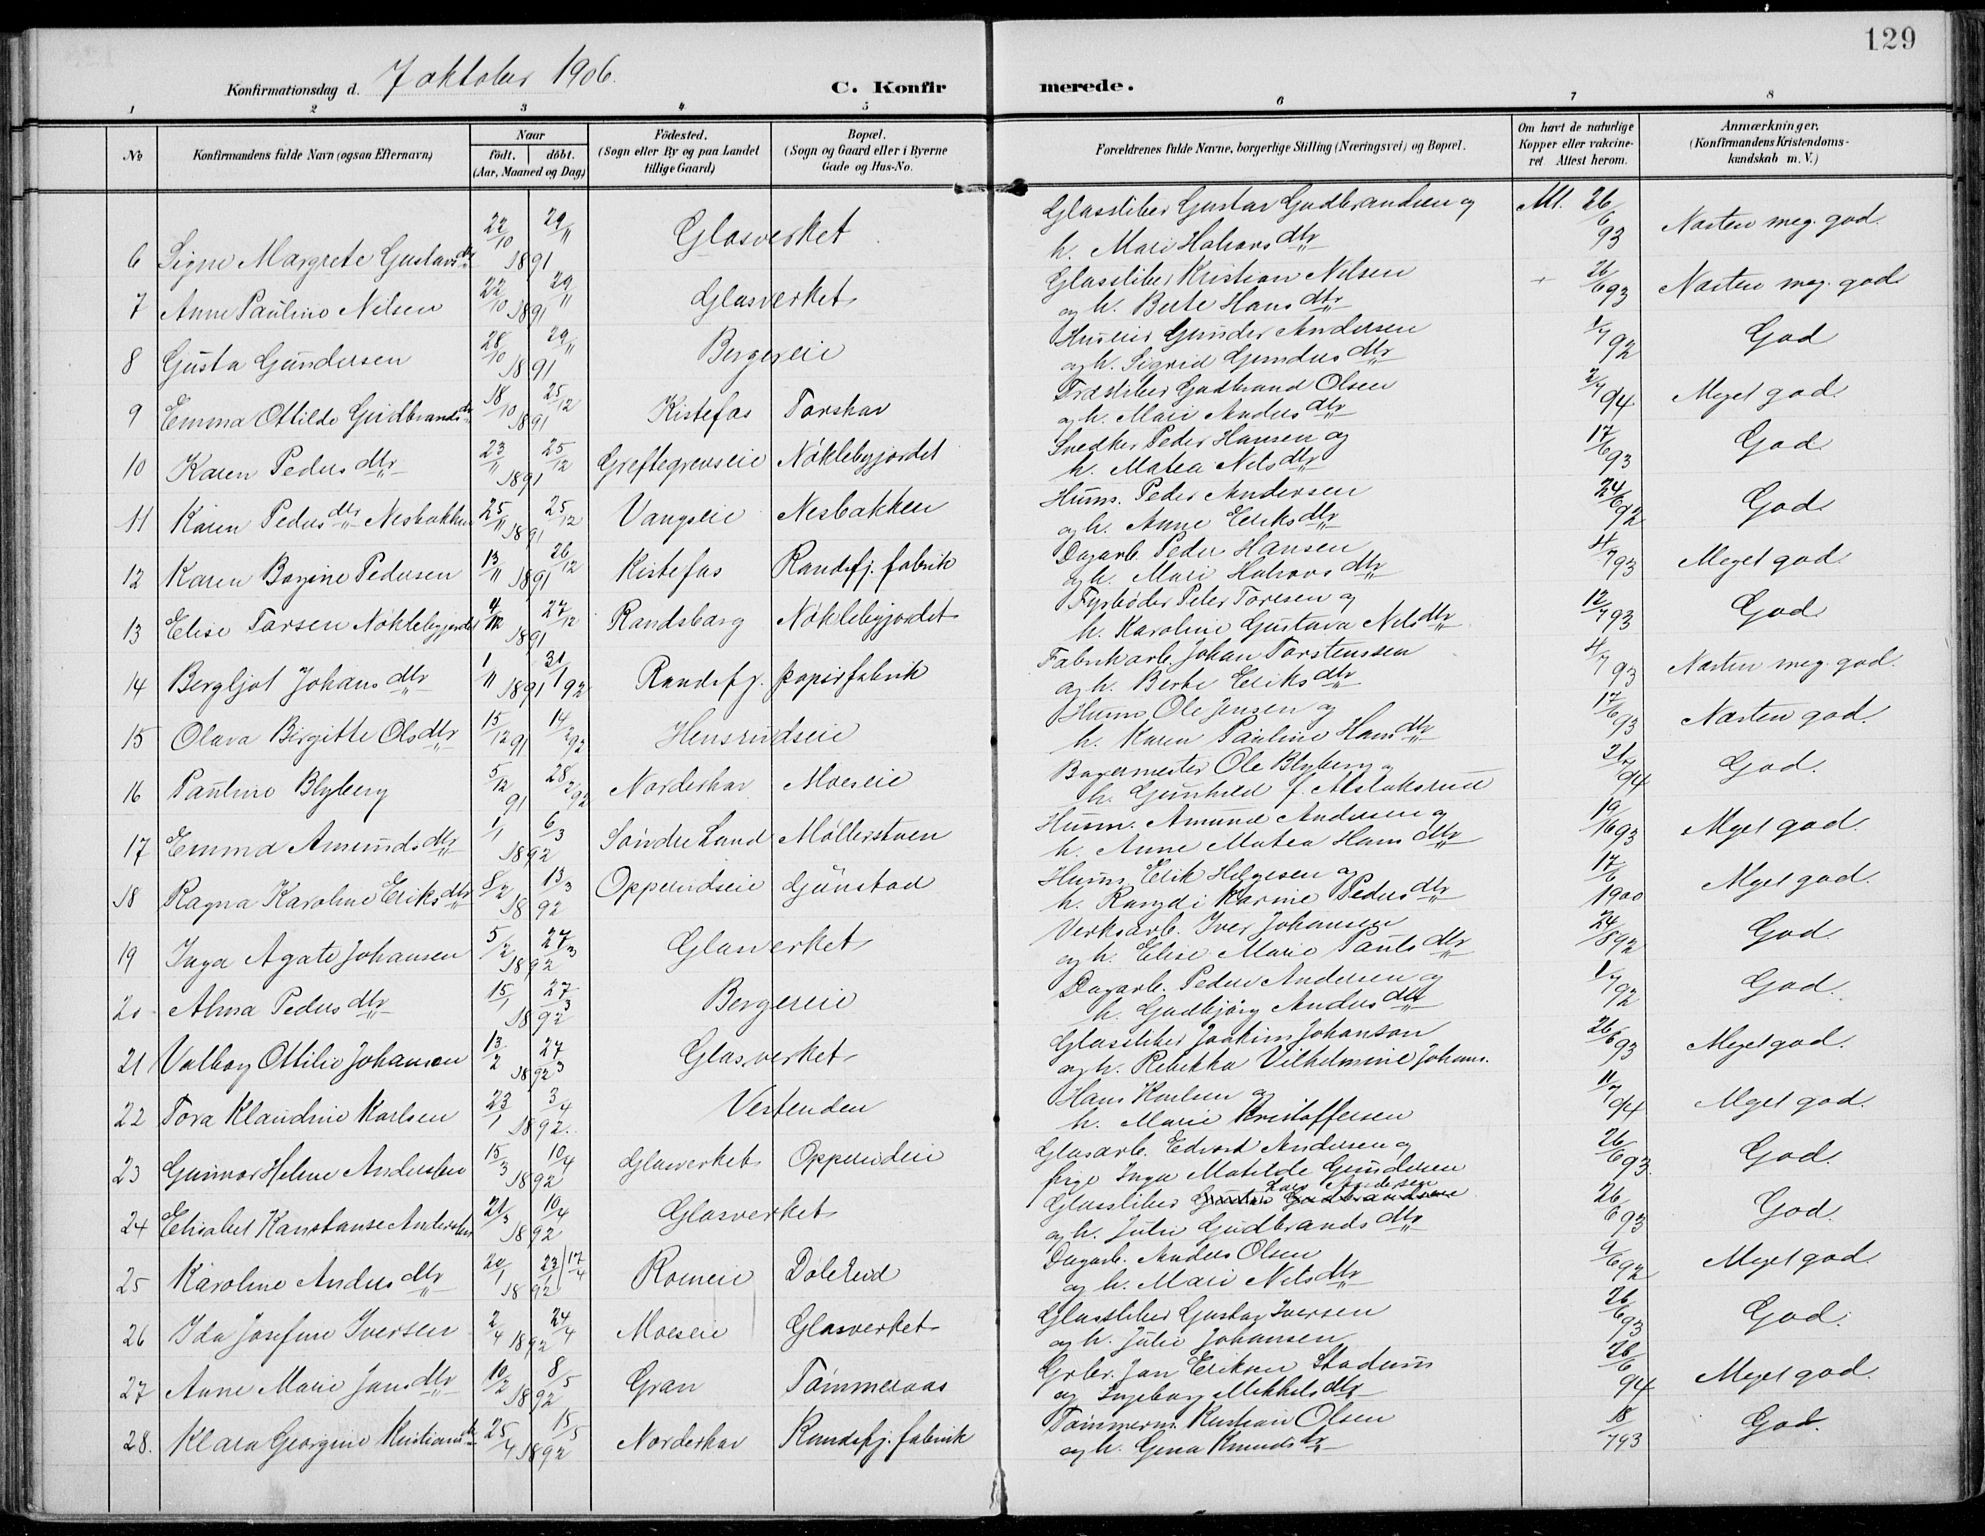 129
Konfirmationsdag d. 7 oktober 1906. C. Konfirmerede.
1 2 3 4 5 6 7 8
No
Konfirmandens fulde Navn (ogsaa Efternavn)
Naar
födt. döbt.
(Aar, Maaned og Dag)
Födested.
(Sogn eller By og paa Landet
tillige Gaard)
Bopæl.
(Sogn og Gaard eller i Byerne
Gade og Hus-No.
Forældrenes fulde Navne, borgerlige Stilling (Næringsvei) og Bopæl.
Om havt de naturlige
Kopper eller vakcine-
ret Attest herom.
Anmærkninger.
(Konfirmandens Kristendoms-
kundskab m. V.)
6 Signe Margrete Gustavsdtr 22/10 1891 29/11 Glasverket Glassliber Gustav Gudbrandsen og Att. 26/6 93 Næsten meg. god.
h. Mari Halvorsdtr
7 Anne Pauline Nilsen 22/10 1891 29/11 Glasverket Glassliber Kristian Nilsen 26/6 93 Næsten meg. god
og h. Berte Hansdtr
8 Gusta Gundersen 28/10 1891 29/11 Bergereie Huseier Gunder Andersen 1/7 92 God
og h. Sigrid Gundersdtr
9 Emma Ottilde Gudbrandsdtr 18/10 1891 25/12 Kistefos Torshov Træsliber Gudbrand Olsen 2/7 94 Meget god
og h. Mari Andersdtr
10 Karen Pedersdtr 23/11 1891 25/12 Greftegreveie Nöklebyjordet Snedker Peder Hansen og 17/6 93 God
h. Matea Nelsdtr
11 Karen Pedersdtr Nesbakken 25/11 1891 25/12 Vangseie Nesbakken Husm. Peder Andersen 24/6 92 God
og h. Anne Eriksdtr
12 Karen Bagine Pedersen 13/11 1891 26/12 Kistefos Randsfj. fabrik Dagarb. Peder Hansen 4/7 93 Meget god
og h. Mari Halvorsdtr
13 Elise Torsen Nöklebyjordet 4/12 1891 27/12 Randsborg Nöklebyjordet Fyrböder Peter Toresen og 12/7 93 God
h. Karoline Gustava Nelsdtr
14 Bergljot Johansdtr 1/11 1891 31/1 92 Randsfj. papirfabrik Fabrikarb. Johan Torstensen 4/7 93 Næsten meg. god.
og h. Berte Eriksdtr
15 Olava Birgitte Olsdtr 15/12 91 14/2 92 Hensrudseie Husm. Ole Jensen og 17/6 93 Næsten god.
h. Karen Pauline Hansdtr
16 Pauline Blyberg 5/12 91 28/2 92 Norderhov Moeseie Bagermester Ole Blyberg og 94 God.
h. Gunhild f. Aslaksrud
17 Emma Amundsdtr 1/1 1892 6/3 Söndre Land Möllerstuen Husm. Amund Andersen og 93 Meget god.
h. Anne Matea Hansdtr
18 Ragna Karoline Eriksdtr 8/2 1892 13/3 Opperudseie Gjönstad Husm. Erik Helgesen og 17/6 1900 Meget god.
h. Rangdi Karine Pedersdtr
19 Inga Agate Johansen 5/2 1892 27/3 Glasverket Verksarb. Iver Johansen 24/8 92 God.
og h. Elise Marie Paulsdtr
20 Alma Pedersdtr 15/1 1892 27/3 Bergereie Dagarb. Peder Andersen og 1/7 92 God.
h. Gudbjörg Andersdtr
21 Valborg Ottilie Johansen 13/2 1892 27/3 Glasverket Glassliber Joakim Johanson 26/6 93 Meget god.
og h. Rebekka Vilhelmine Johans.
22 Tora Klaudine Karlsen 23/1 1892. 3/4 Vestenden Hans Karlsen og 11/7 94 Meget god.
h. Marie Kristoffersen
23 Gunvor Helene Andersen 15/3 1892 10/4 Glasverket Opperudeie Glasarb. Edvart Andersen og 26/6 93. God.
pige Inga Matilde Gundersen
24 Elisabet Konstanse Andersen 21/3 1892 10/4 Glasverket Glassliber Gustav Gudbrandsen Lars Andersen 26/6 93 God.
og h. Julie Gudbrandsdtr
25 Karoline Andersdtr 20/1 1892 17/4 Roneie Dölerud Dagarb. Anders Olsen 9/6 92 Meget god.
og h. Mari Nelsdtr
26 Ida Josefine Iversen 2/4 1892 24/4 Moeseie Glasverket Glassliber Gustav Iversen 26/6 93 God.
og h. Julie Johansen
27 Anne Marie Jansdtr 10/2 1892 8/5 Gran Tömmeraas Grbr. Jan Eriksen Stadum 26/6 94 Meget god.
og Ingeborg Mikkelsdtr
28. Klara Georgine Kristiansdtr 25/4 1892 15/5 Norderhov Randsfj. fabrik Tömmerm. Kristian Olsen 18/7 93 God.
og h. Gina Knudsdtr